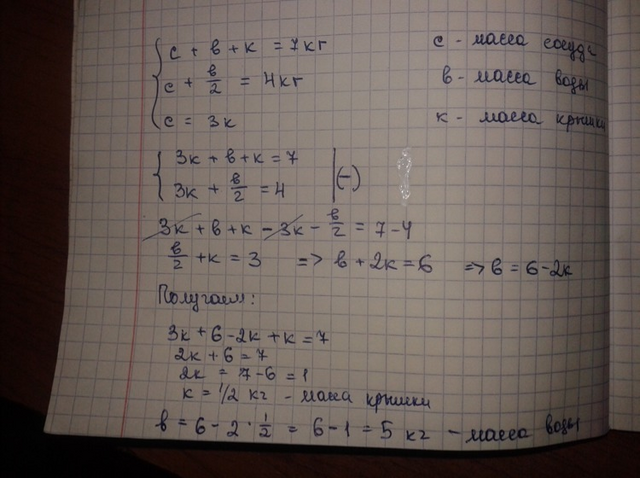 с + в + к = 7кг    с - масса сосуда
с + в/2 = 4кг    в - масса воды
с = 3к    к - масса крышки
3к + в + к = 7
3к + в/2 = 4    | (-)
3к + в + к - 3к - в/2 = 7 - 4
в/2 + к = 3    => в + 2к = 6    => в = 6 - 2к
Получаем:
3к + 6 - 2к + к = 7
2к + 6 = 7
2к = 7 - 6 = 1
к = 1/2 кг - масса крышки
в = 6 - 2 · 1/2 = 6 - 1 = 5 кг - масса воды